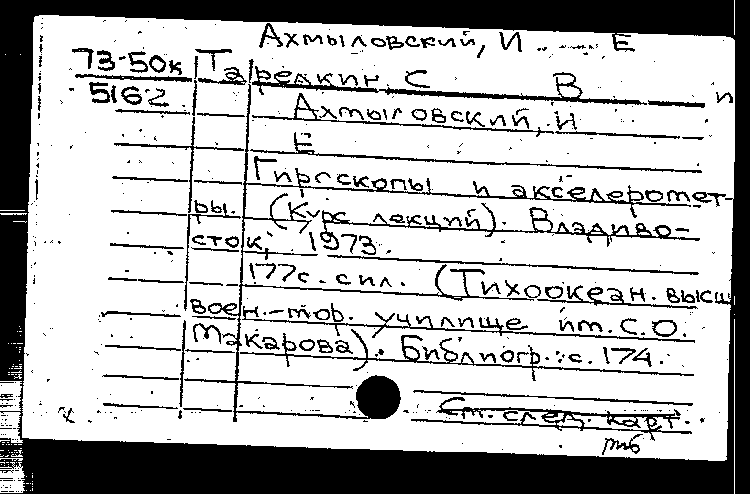 Ахмыловский, И Е
73-50к Тарелкин С В и
5162 Ахмыловский, И
Е
Гироскопы и акселеромет-
ры. (Курс лекций). Владиво-
сток, 1973.
177с. с ил. (Тихоокеан. высш
воен.-мор. училище им. С.О.
Макарова). Библиогр.: с. 174.
См. след. карт.